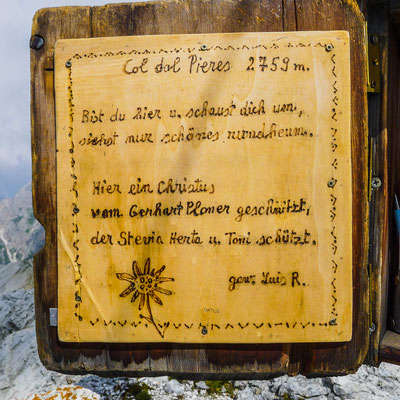 Col dal Pieres 2759 m.
Bist du hier u. schaust dich um,
siehst nur schönes rundheum.
Hier ein Christus
vom Gerhart Ploner geschnützt,
der Stevia Herta u. Toni schützt.
gew. Luis R.